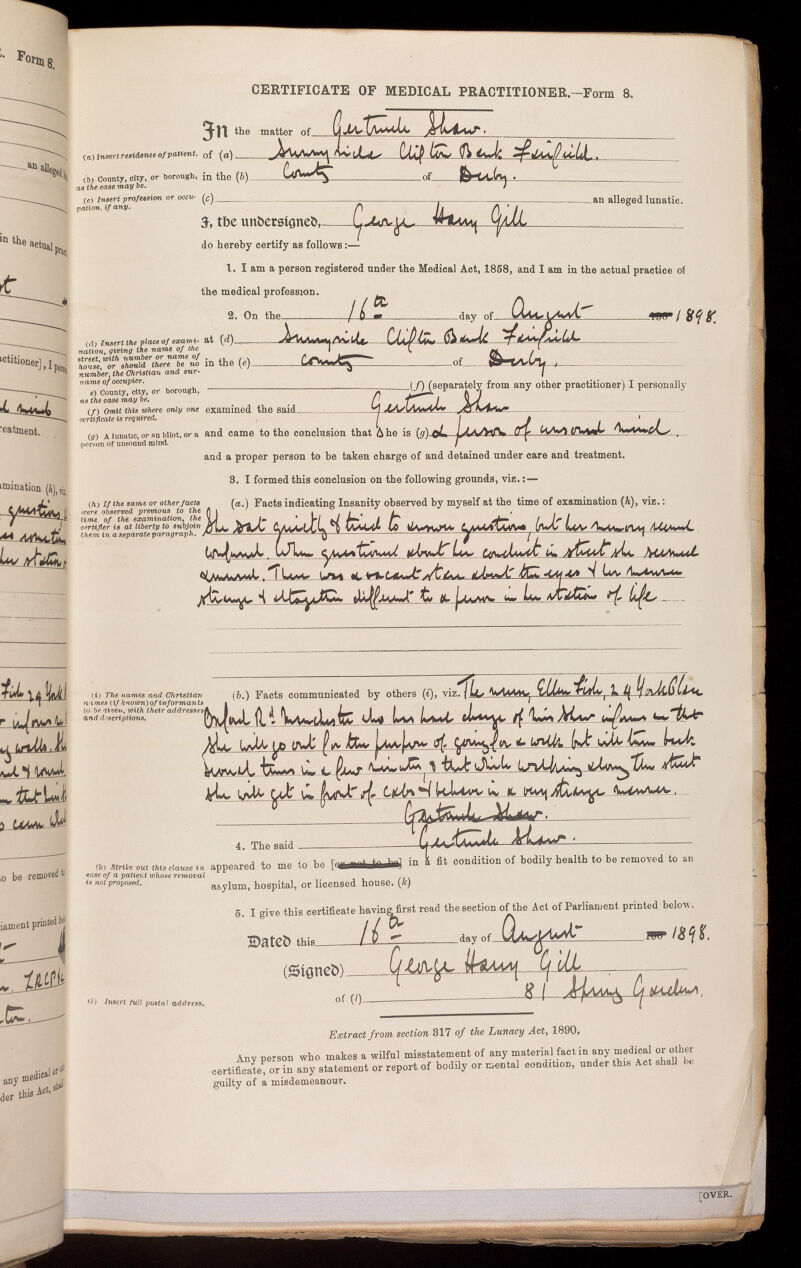 . Form 8.
an alleged
in the actual
ctitioner], I
mind
eatment.
mination (h), viz
questions
as
her station
Fish 24 York
walks. She
to be removed
iament printed
LRCP
any medical or
der this Act, shall
CERTIFICATE OF MEDICAL PRACTITIONER.—Form 8.
In the matter of Gertrude Shaw.
(a) Insert residence of patient. of (a) Sunny side Clifton Bank Fairfield.
(b) County, city, or borough, in the (b) County of Derby.
as the case may be.
(c) Insert profession or occu- (c) an alleged lunatic.
pation, if any.
I, the undersigned, George Harry Gill
do hereby certify as follows:—
1. I am a person registered under the Medical Act, 1858, and I am in the actual practice of
the medical profession.
2. On the 16th day of August 1898.
(d) Insert the place of exami- at (d) Sunnyside Clifton Bank Fairfield
nation, giving the name of the
street, with number or name of
house, or should there be no in the (e) County of Derby,
number, the Christian and sur-
name of occupier.
e) County, city, or borough, (f) (separately from any other practitioner) I personally
as the case may be.
(f) Omit this where only one examined the said Gertrude Shaw
certificate is required.
(g) A lunatic, or an idiot, or a and came to the conclusion that She is (g) a person of unsound mind.
person of unsound mind.
and a proper person to be taken charge of and detained under care and treatment.
3. I formed this conclusion on the following grounds, viz.:—
(h) If the same or other facts (a.) Facts indicating Insanity observed by myself at the time of examination (h), viz.:
were observed previous to the
time of the examination, the
certifier is at liberty to subjoin
them in a separate paragraph.
She sat quietly & tried to answer questions, but her memory seemed
confused. When questioned about her conduct in street she seemed
amused. There was a vacant stare about the eyes & her manner
strange & altogether different to a person in her station of life
(i) The names and Christian (b.) Facts communicated by others (i), viz. The nurse, Ellen Fish, 24 York Place
names (if known) of informants
to be given, with their addresses
and descriptions.
Oxford Rd. Manchester who has had charge of Miss Shaw informs me that
She will go out for the purpose of going for a walk but will turn back
several times in a few minutes, & that while walking along the street
she will get in front of cabs & behave in a very strange manner.
Gertrude Shaw.
4. The said Gertrude Shaw.
(k) Strike out this clause in appeared to me to be [or not to be] in a fit condition of bodily health to be removed to an
case of a patient whose removal
is not proposed. asylum, hospital, or licensed house. (k)
5. I give this certificate having first read the section of the Act of Parliament printed below.
Dated this 16th day of August 1898.
(Signed) George Harry Gill
(l) Insert full postal address. of (l) 81 Spring Gardens.
Extract from section 317 of the Lunacy Act, 1890,
Any person who makes a wilful misstatement of any material fact in any medical or other
certificate, or in any statement or report of bodily or mental condition, under this Act shall be
guilty of a misdemeanour.
[OVER.